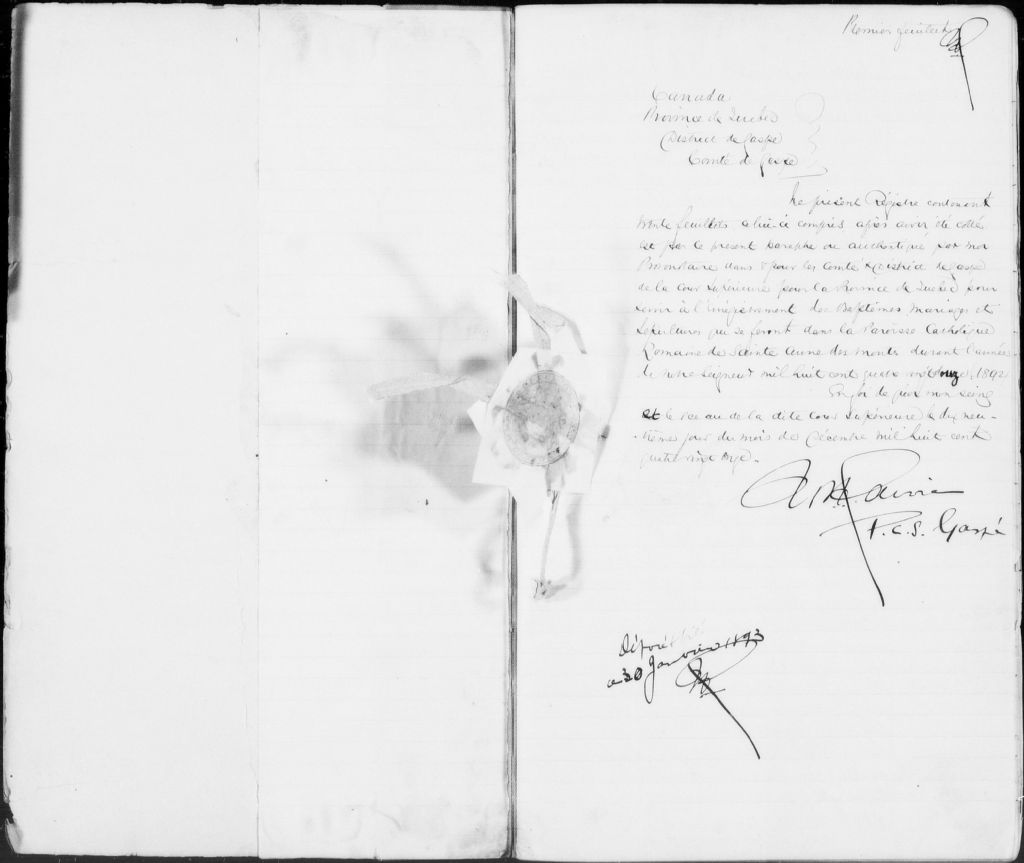 Premier feuillet
Canada
Province de Québec
District de Gaspé
Comté de Gaspé
Le présent Régistre contenant
trente feuillets celui-ci compris après avoir été coté
et par le présent paraphe ou authentiqué par moi
Protonotaire dans & pour les Comté & District de Gaspé
de la Cour Supérieure pour la Province de Québec pour
servir à l'enrégistrement des Baptêmes, mariages et
Sépultures qui se feront dans la Paroisse Catholique
Romaine de Sainte Anne des Monts durant l'année
de notre Seigneur mil huit cent quatre vingt douze, 1892
En foi de quoi mon seing
et le sceau de la dite Cour Supérieure le dix neu-
-vième jour du mois de Décembre mil huit cent
quatre vingt onze.
P. C. S. Gaspé
Déposé
ce 30 Janvier 1893